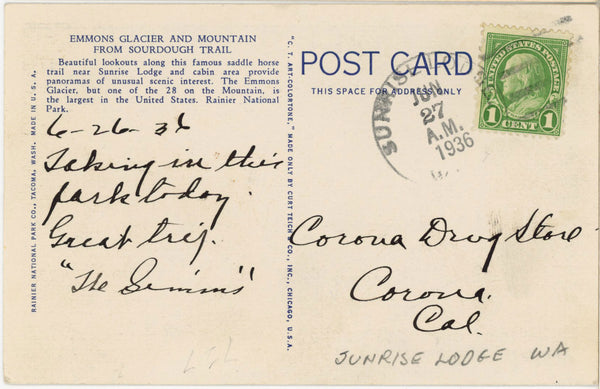 EMMONS GLACIER AND MOUNTAIN
FROM SOURDOUGH TRAIL
Beautiful lookouts along this famous saddle horse
trail near Sunrise Lodge and cabin area provide
panoramas of unusual scenic interest. The Emmons
Glacier, but one of the 28 on the Mountain, is
the largest in the United States. Rainier National
Park.
6-26-36
Taking in this
park today.
Great trip.
"The Simms"
RAINIER NATIONAL PARK CO., TACOMA, WASH. MADE IN U. S. A.
"C. T. ART-COLORTONE," MADE ONLY BY CURT TEICH & CO., INC., CHICAGO, U.S.A.
POST CARD
THIS SPACE FOR ADDRESS ONLY
SUNRISE
JUN
27
A.M.
1936
UNITED STATES POSTAGE
1 CENT 1
Corona Drug Store
Corona.
Cal.
SUNRISE LODGE WA